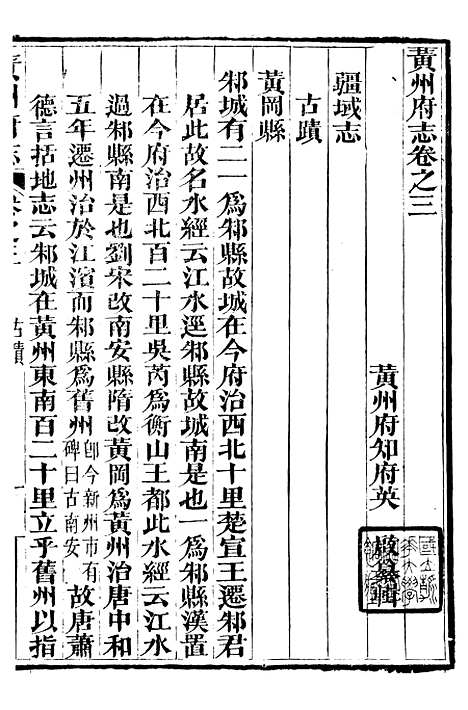 黃州府志卷之三
黃州府知府英啟纂輯
疆域志
古蹟
黃岡縣
邾城有二一為邾縣故城在今府治西北十里楚宣王遷邾君
居此故名水經云江水逕邾縣故城南是也一為邾縣漢置
在今府治西北百二十里吳芮為衡山王都此水經云江水
過邾縣南是也劉宋改南安縣隋改黃岡為黃州治唐中和
五年遷州治於江濱而邾縣為舊州卽今新州市有碑曰古南安故唐蕭
德言括地志云邾城在黃州東南百二十里立乎舊州以指
古蹟